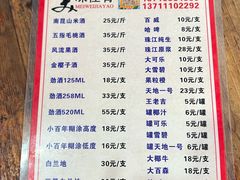 MEIWEIJIAYAO
13711102292
南昆山米酒 25元/斤
五指毛桃酒 35元/斤
风流果酒 30元/斤
金樱子酒 35元/斤
劲酒125ML 18元/支
劲酒258ML 35元/支
劲酒520ML 55元/支
小百年糊涂高度 18元/支
小百年糊涂低度 16元/支
白兰地 30元/支
百威 10元/支
哈啤 8元/支
珠江纯生 10元/支
珠江原浆 28元/支
大可乐 10元/支
大雪碧 10元/支
果粒橙 10元/支
天地一号 23元/支
王老吉 5元/罐
椰汁 6元/罐
罐可乐 5元/罐
罐雪碧 5元/罐
罐天地一号 6元/罐
大椰牛 18元/支
大百森 18元/支